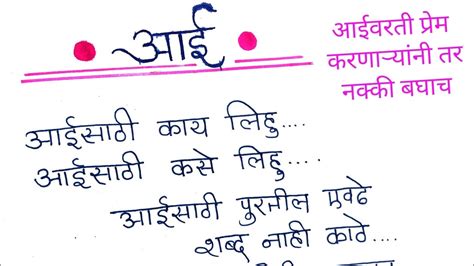 आई
आईवरती प्रेम
करणाऱ्यांनी तर
नक्की बघाच
आईसाठी काय लिहु....
आईसाठी कसे लिहु....
आईसाठी पुरतील एवढे
शब्द नाही कोठे....